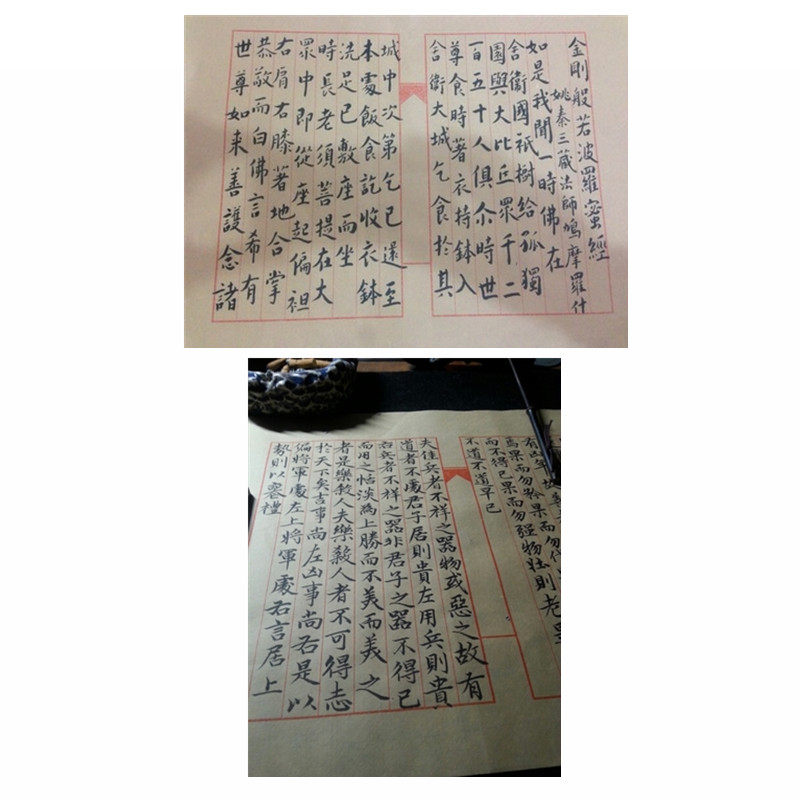 金剛般若波羅蜜經
姚秦三藏法師鳩摩羅什
如是我聞一時佛在
舍衛國祇樹給孤獨
園與大比丘眾千二
百五十人俱尒時世
尊食時著衣持鉢入
舍衛大城乞食於其
城中次第乞已還至
本處飯食訖收衣鉢
洗足已敷座而坐
時長老須菩提在大
眾中即從座起偏袒
右肩右膝著地合掌
恭敬而白佛言希有
世尊如来善護念諸
有凶年故善
焉果而勿矜果而勿伐
而不得已果而勿强物壯則老是
不道不道早已
夫佳兵者不祥之器物或惡之故有
道者不處君子居則貴左用兵則貴
右兵者不祥之器非君子之器不得已
而用之恬淡為上勝而不美而美之
者是樂殺人夫樂殺人者不可得志
於天下矣吉事尚左凶事尚右是以
偏將軍處左上將軍處右言居上
勢則以喪禮